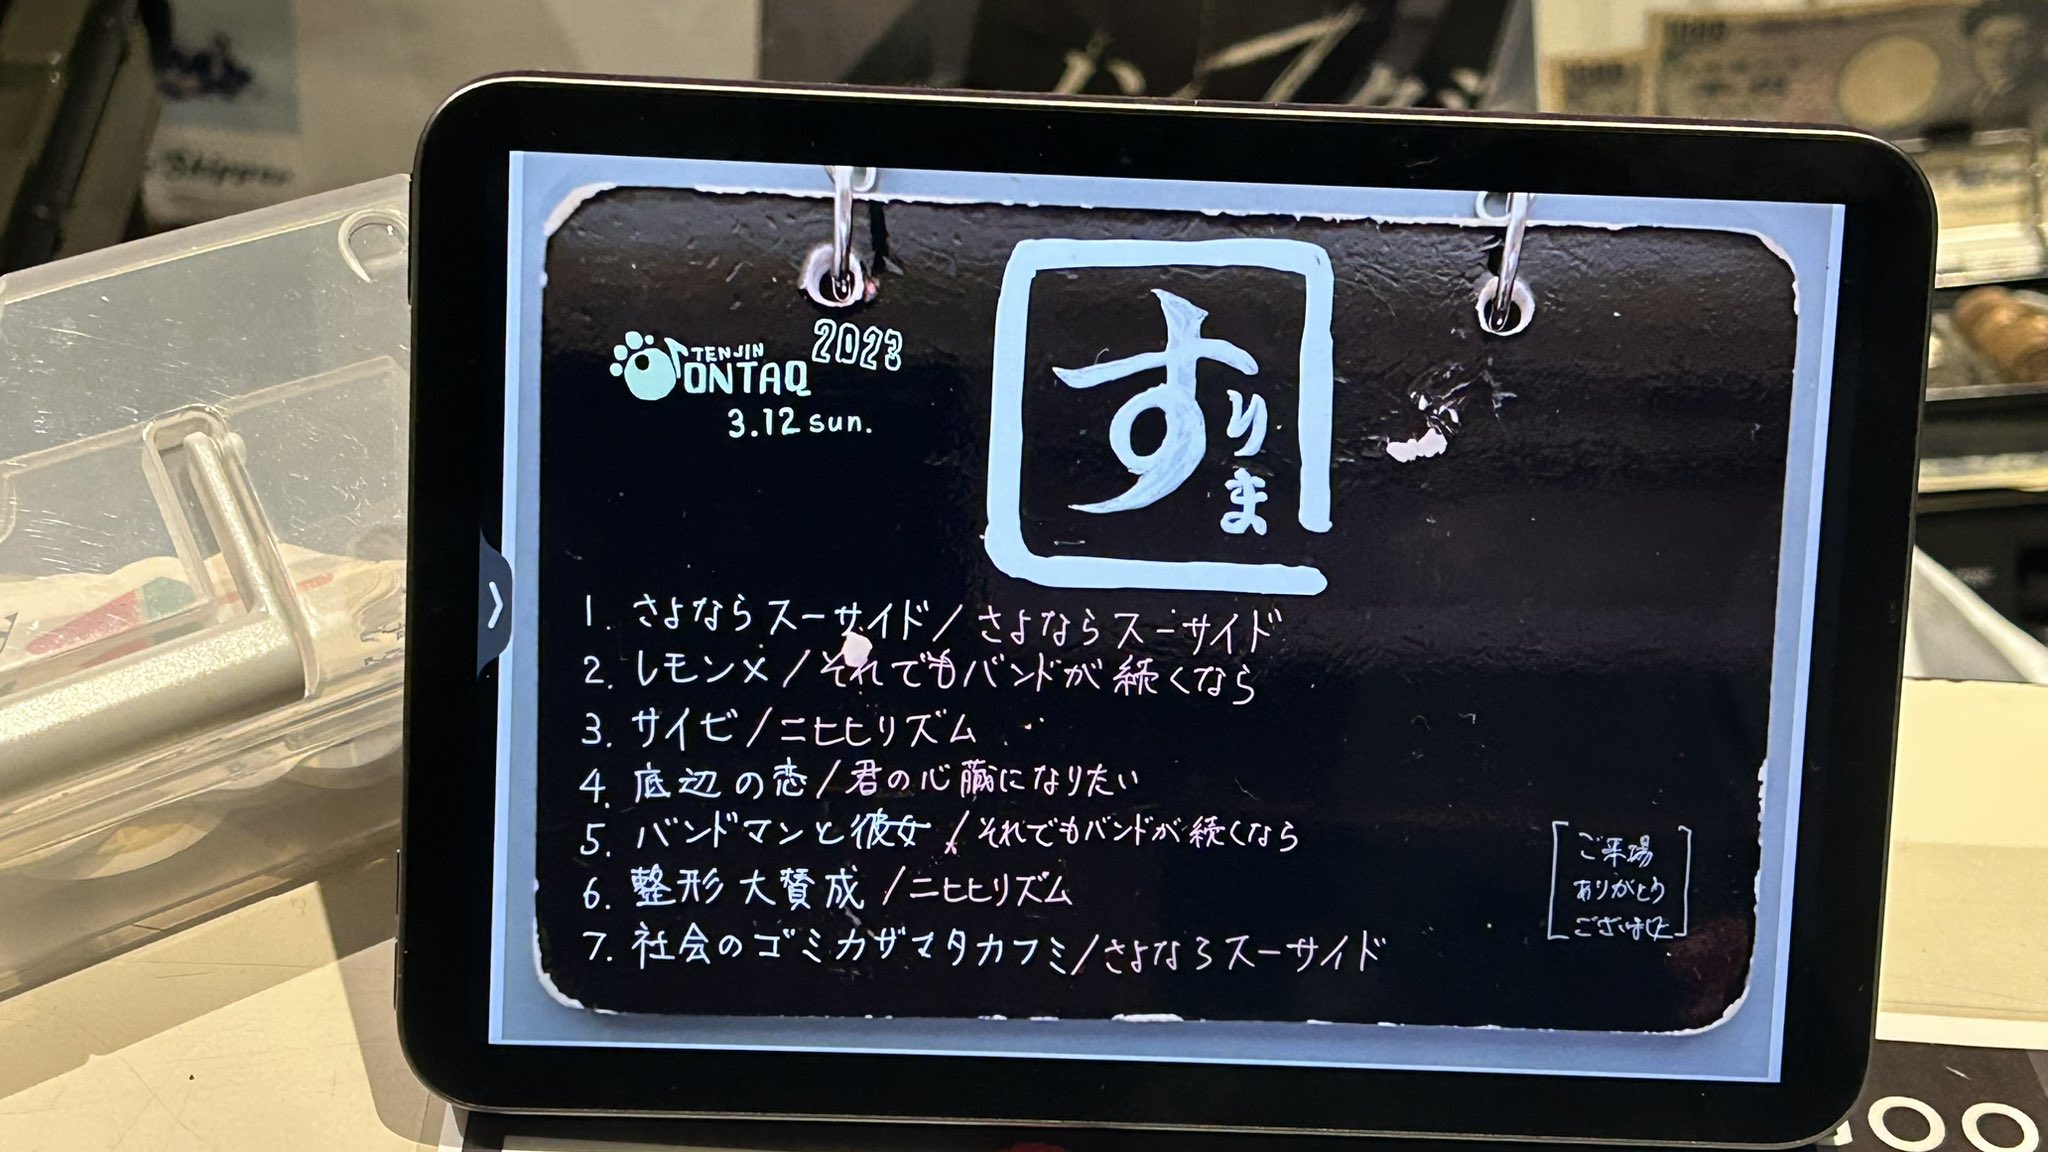 TENJIN
ONTAQ
2023
3.12 sun.
すりま
1. さよならスーサイド/さよならスーサイド
2. レモン×/それでもバンドが続くなら
3. サイゼ/ニヒヒリズム
4. 底辺の恋/君の心臓になりたい
5. バンドマンと彼女/それでもバンドが続くなら
6. 整形大賛成/ニヒヒリズム
7. 社会のゴミカザマタカフミ/さよならスーサイド
ご来場
ありがとう
ございました
1000